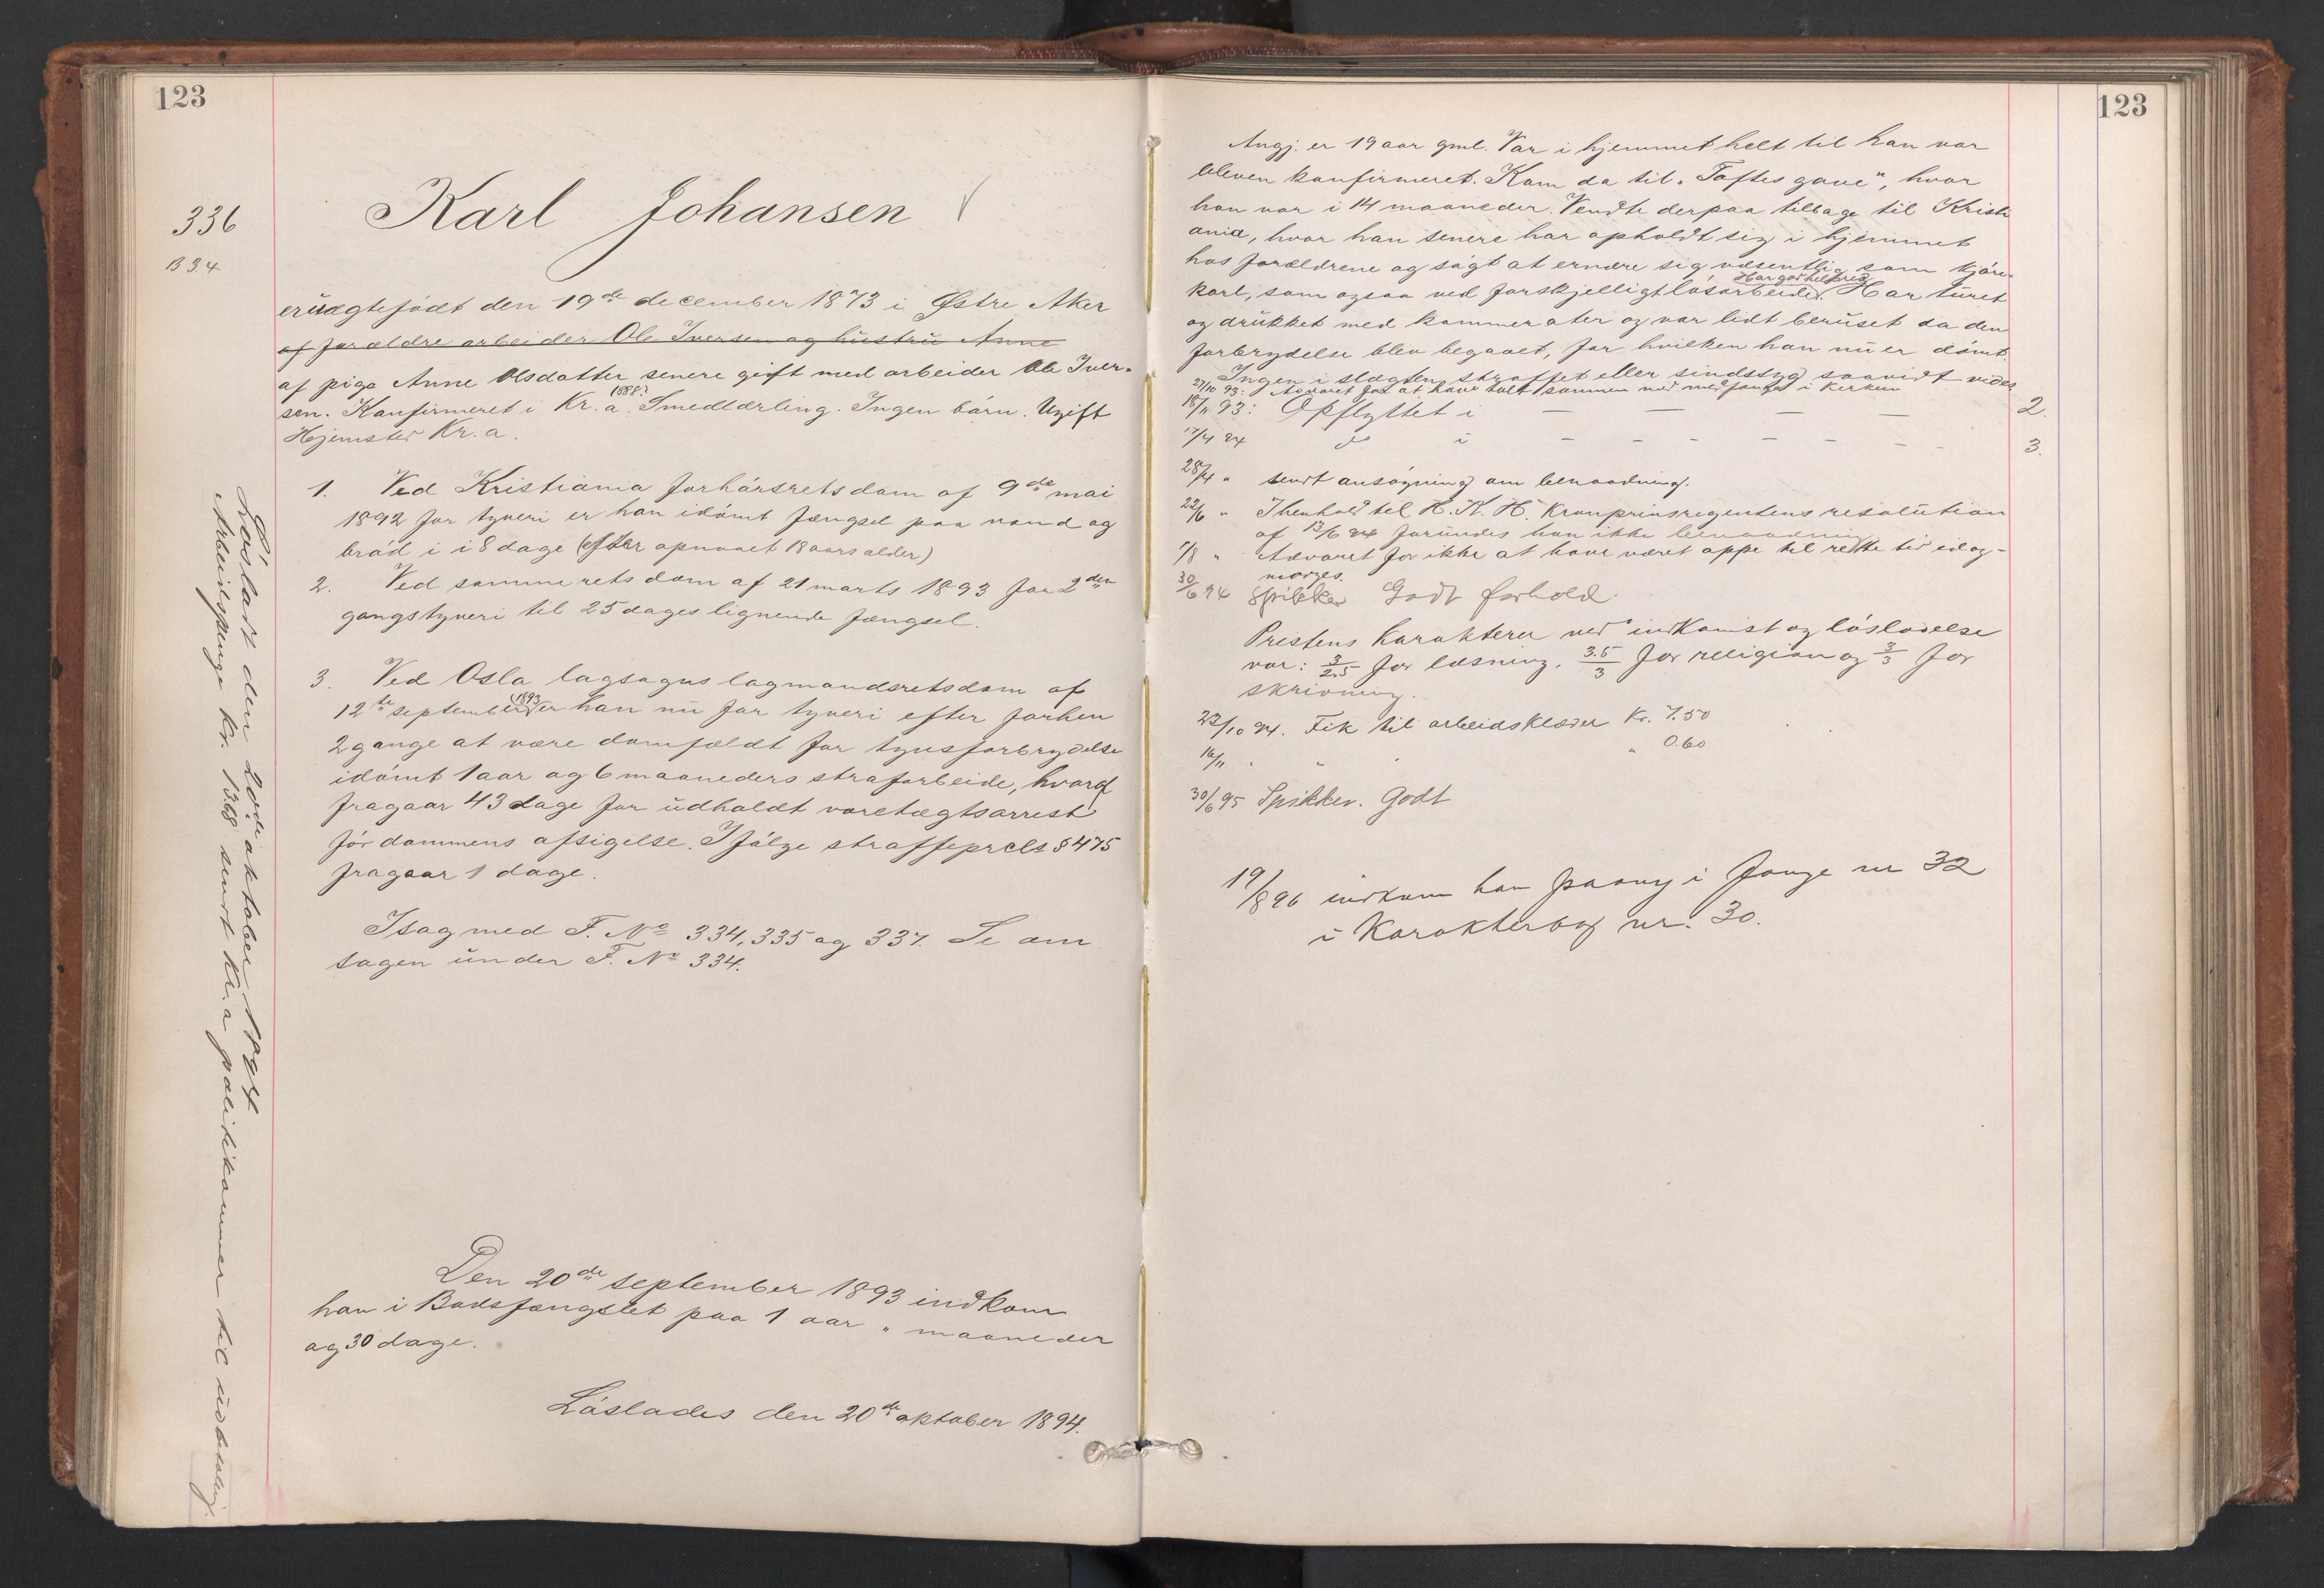 123
336
B 3.4
Karl Johansen
er uægtefödt den 19de december 1873 i Østre Aker
af forældre arbeider Ole Iversen og hustru Anne
af pige Anne Olsdatter senere gift med arbeider Ole Iver-
sen. Konfirmeret i Kr.a. 1888. Smedlærling. Ingen börn. Ugift
Hjemsted Kr.a.
1. Ved Kristiania forhörsretsdom af 9de mai
1892 for tyveri er han idömt fængsel paa vand og
bröd i i 8 dage (efter opnaaet 18 aars alder)
2. Ved samme rets dom af 21 marts 1893 for 2den
gangs tyveri til 25 dages lignende fængsel.
3. Ved Oslo lagsogns lagmandsretsdom af
12te september 1893 er han nu for tyveri efter forhen
2 gange at være domfældt for tyvsforbrydelse
idömt 1 aar og 6 maaneders strafarbeide, hvoraf
fragaar 43 dage for udholdt varetægtsarrest
för dommens afsigelse. Ifölge straffeprcls § 475
fragaar 1 dage.
I sag med F. No 334, 335 og 337. Se om
sagen under F. No 334.
Den 20de september 1893 indkom
han i Bodsfængslet paa 1 aar " maaneder
og 30 dage.
Löslades den 20de oktober 1894.
Lösladt den 20de oktober 1894
Arbeidspenge kr. 13.68 sendt Kr.a politikammer til udbetaling.
123
Angj. er 19 aar gml. Var i hjemmet helt til han var
bleven konfirmeret. Kom da til "Toftes gave", hvor
han var i 14 maaneder. Vendte derpaa tilbage til Kristi
ania, hvor han senere har opholdt sig i hjemmet
hos forældrene og sögt at ernære sig væsentlig som kjöre-
karl, som ogsaa ved forskjelligt lösarbeide. Har god helbred. Har turet
og drukket med kammerater og var lidt beruset da den
forbrydelse blev begaaet, for hvilken han nu er dömt.
Ingen i slægten straffet eller sindssyg saavidt vides
27/10 93: Advaret for at have talt sammen med medfange i kirken
18/11 93: Opflyttet i — — — — 2.
17/4 94 do i – – – – – – – 3.
28/4 " sendt ansögning om benaadning.
22/6 " I henhold til H. K. H. Kronprinsregentens resolution
af 13/6 94 forundes han ikke benaadning
1/8 " Advaret for ikke at have været oppe til rette tid idag-
morges.
30/6 94 Spikker Godt forhold.
Prestens karakterer ved indkomst og lösladelse
var: 3/2.5 for læsning, 3.5/3 for religion og 3/3 for
skrivning.
23/10 94. Fik til arbeidsklæder Kr. 7.50
16/11 " " " " 0.60
30/6 95 Spikker. Godt
19/8 96 indkom han paany i Fange nr 32
i Karakterbog nr. 30.